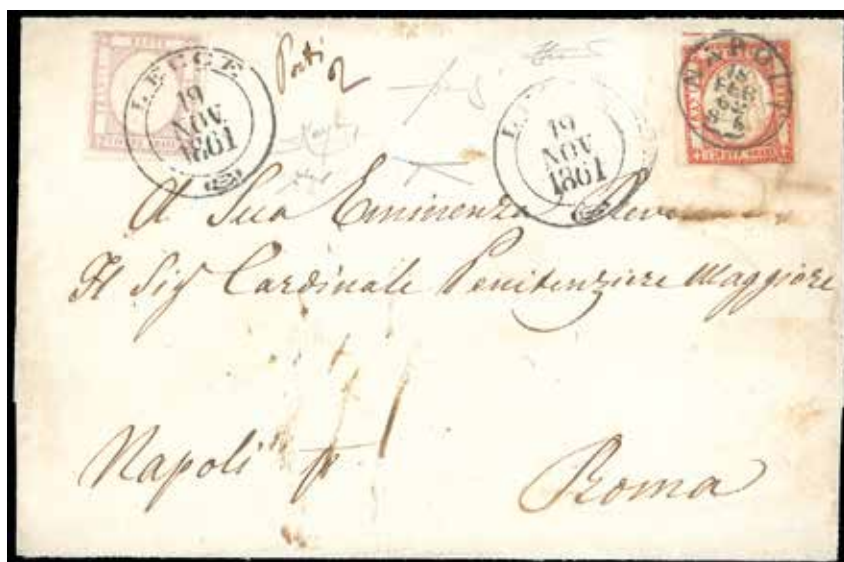 LECCE
19
NOV
1861
Porti 2
19
NOV
1861
NAPOLI
18
FEB
62
A Sua Eminenza
Il Sigr Cardinale Penitenziere Maggiore
Napoli pr Roma